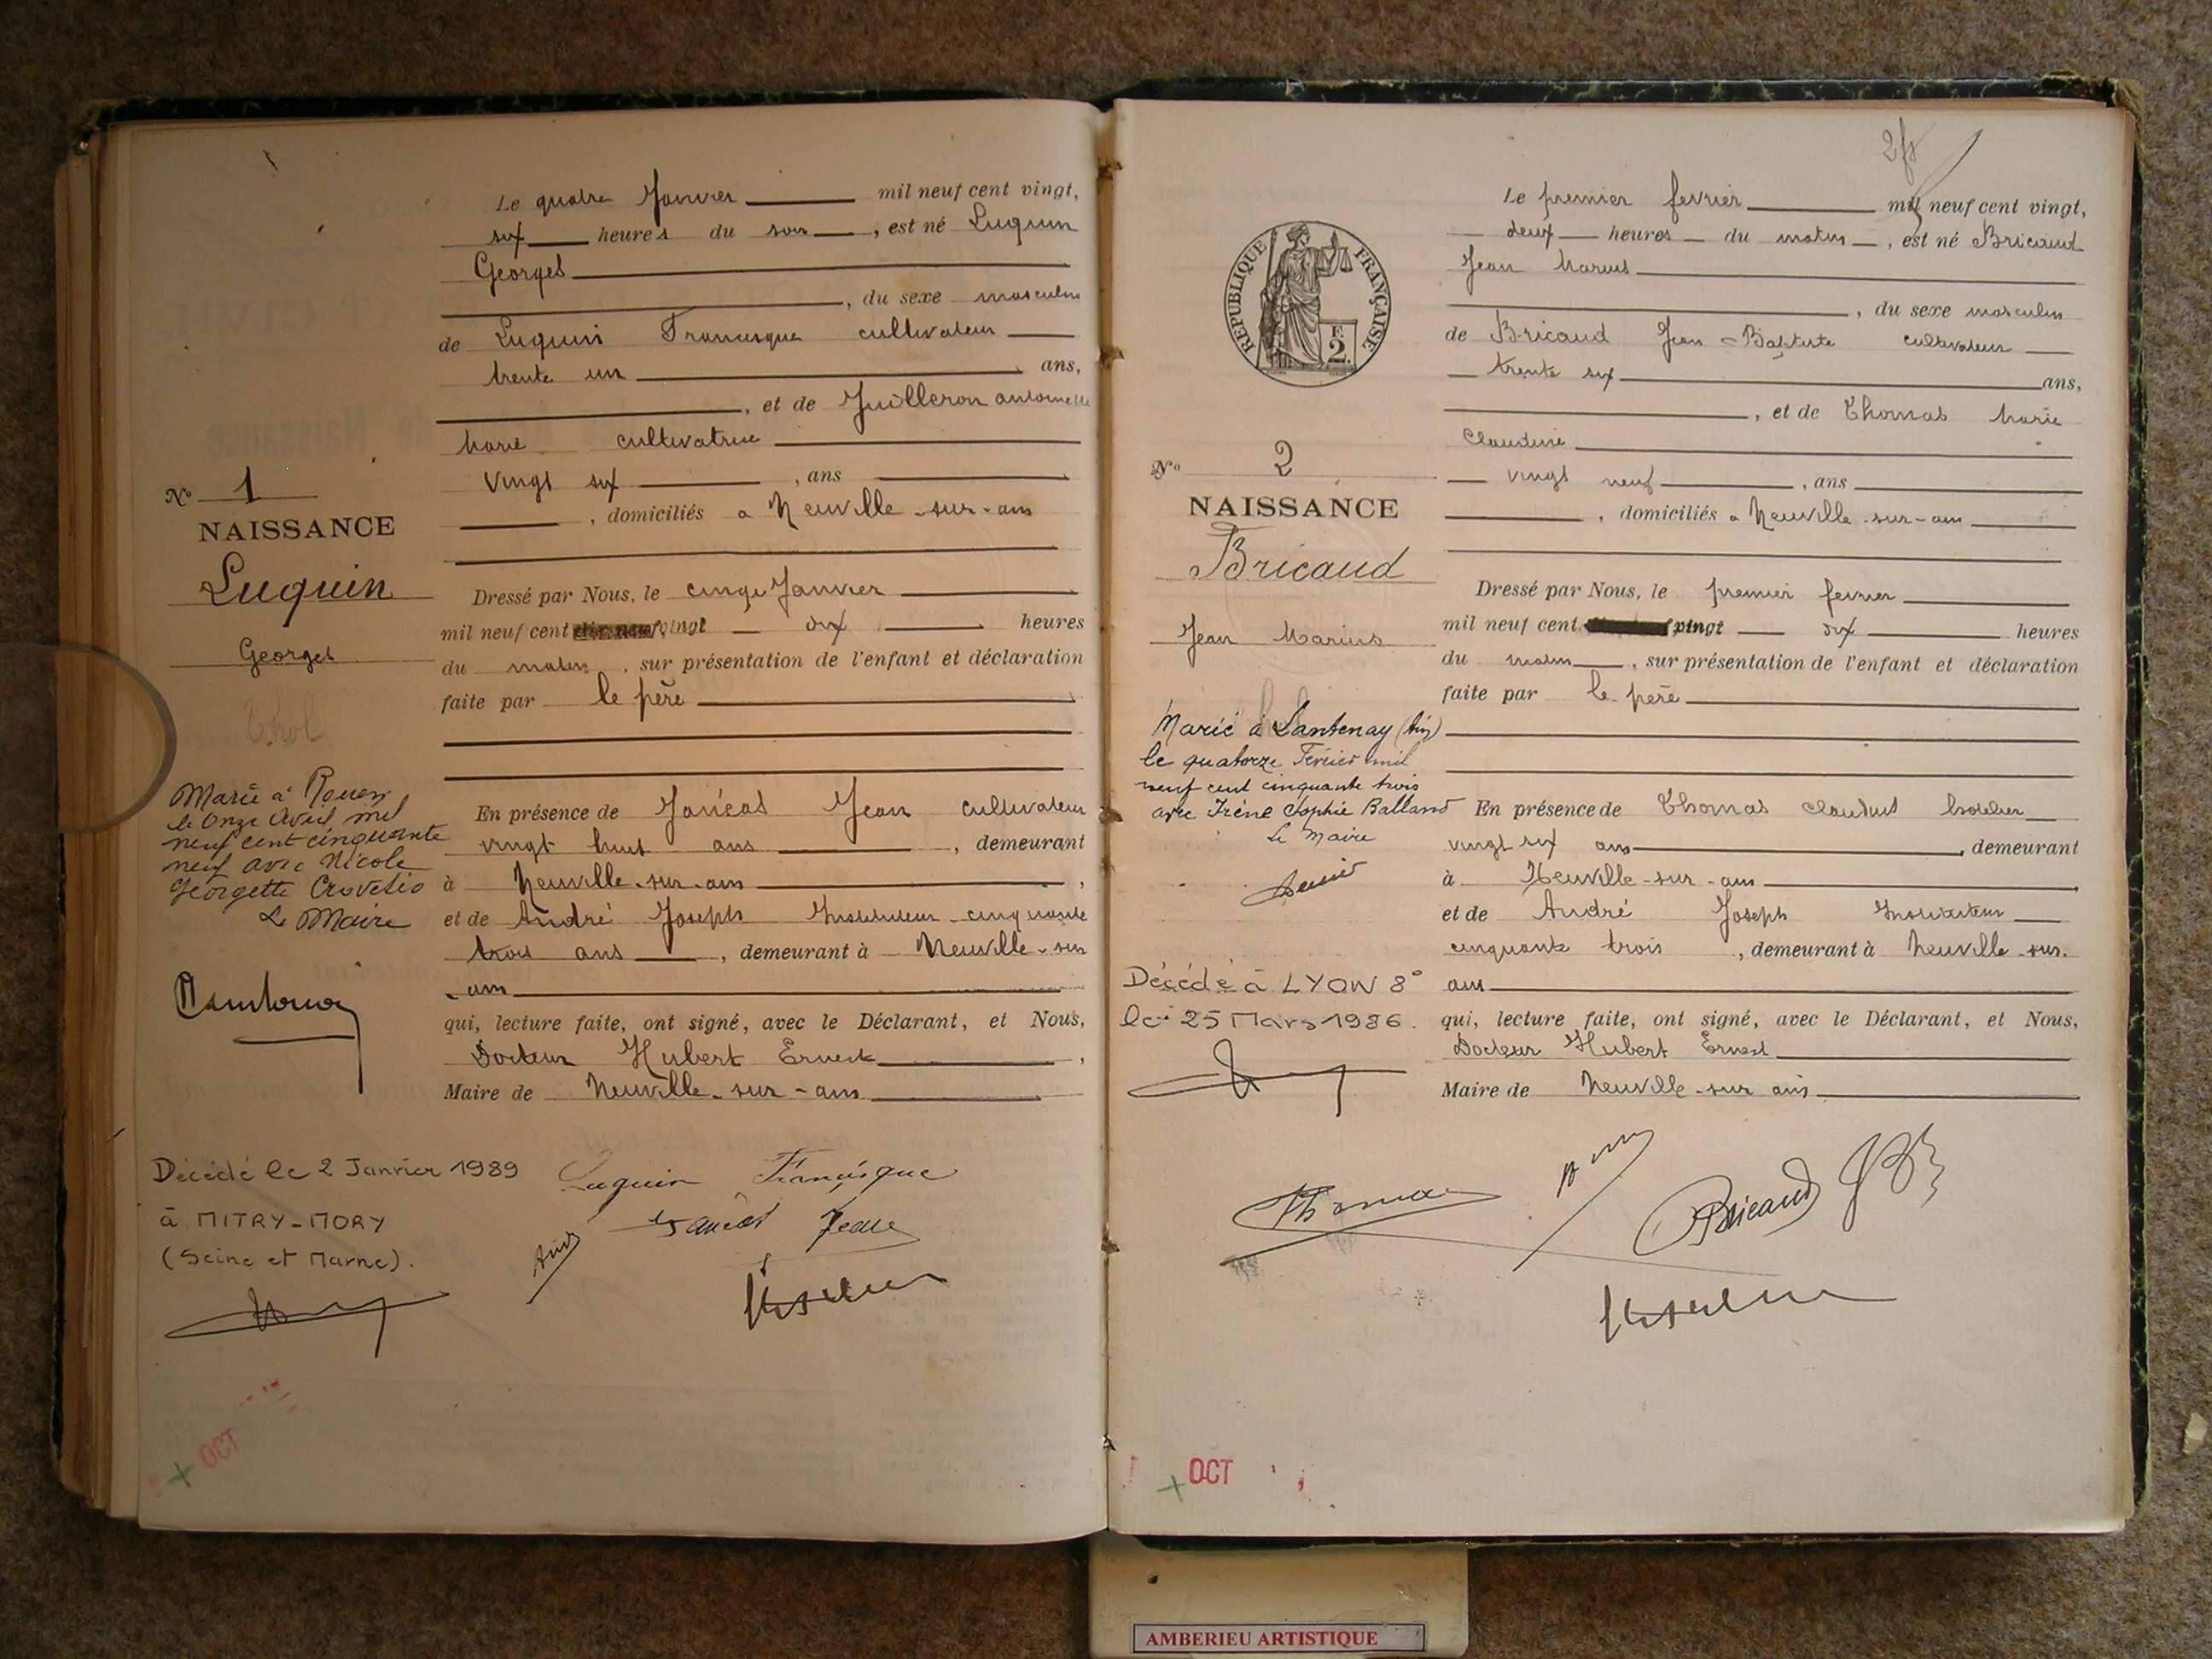 Le quatre Janvier mil neuf cent vingt,
six heures du soir, est né Luquin
Georges
, du sexe masculin
de Luquin Francisque cultivateur
trente un ans,
, et de Juilleron antoinette
Marie cultivatrice
Vingt six, ans
, domiciliés a Neuville-sur-ain
No 1
NAISSANCE
Luquin
Georges
Thol
Dressé par Nous, le cinq Janvier
mil neuf cent vingt dix heures
du matin, sur présentation de l'enfant et déclaration
faite par le père
Marié à Rouen
le Onze Avril mil
neuf cent cinquante
neuf avec Nicole
Georgette Crovetio
Le Maire
En présence de Janéas Jean cultivateur
vingt huit ans, demeurant
à Neuville-sur-ain,
et de André Joseph Instituteur cinquante
trois ans, demeurant à Neuville-sur
-ain
qui, lecture faite, ont signé, avec le Déclarant, et Nous,
Docteur Hubert Ernest,
Maire de Neuville-sur-ain
Décédé le 2 Janvier 1989
à MITRY-MORY
(Seine et Marne).
Luquin Francisque
Jean
OCT
Le premier fevrier mil neuf cent vingt,
deux heures du matin, est né Bricaud
Jean Marius
, du sexe masculin
de Bricaud Jean-Baptiste cultivateur
trente six ans,
, et de Thomas Marie
Claudine
vingt neuf, ans
, domiciliés a Neuville-sur-ain
REPUBLIQUE FRANÇAISE
F.
2.
No 2
NAISSANCE
Bricaud
Jean Marius
Dressé par Nous, le premier fevrier
mil neuf cent vingt dix heures
du matin, sur présentation de l'enfant et déclaration
faite par le père
Marié à Lantenay (Ain)
le quatorze Février mil
neuf cent cinquante trois
avec Irène Sophie Balland
Le Maire
En présence de Thomas Claudius hotelier
vingt six ans, demeurant
à Neuville-sur-ain,
et de André Joseph Instituteur
cinquante trois, demeurant à Neuville-sur-
ain
Décédé à LYON 8°
le 25 Mars 1986.
qui, lecture faite, ont signé, avec le Déclarant, et Nous,
Docteur Hubert Ernest
Maire de Neuville-sur ain
Thomas
Bricaud JB
OCT
AMBERIEU ARTISTIQUE